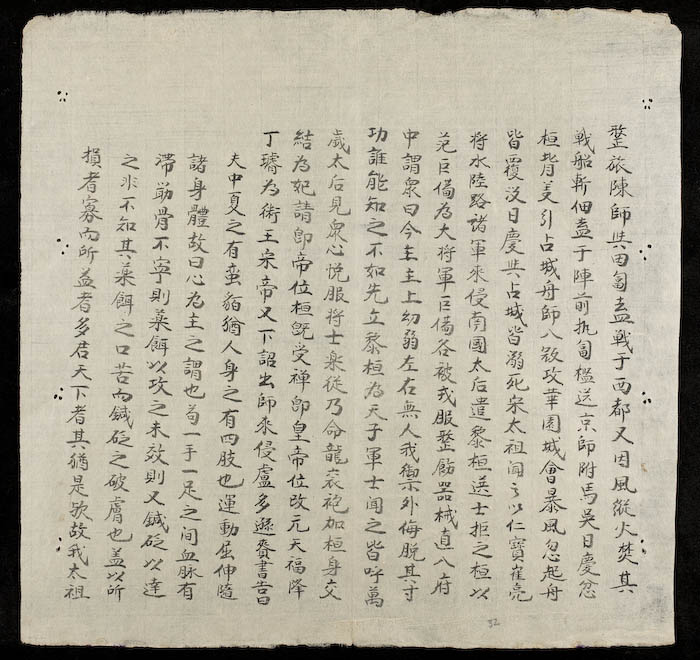 整旅陳師與田匐盍戰于西都又因風縱火焚其
戰船斬佃盍于陣前执匐檻送京師附馬吳日慶忿
桓背美引占城舟師入攻華閭城會暴風忽起舟
皆覆没日慶與占城皆溺死宋太祖闻之以仁寶崔亮
将水陸路諸軍來侵南國太后遣黎桓送士拒之桓以
范巨俻為大将軍巨俻各被戎服整飭器械直入府
中謂衆曰今主主上幼弱左右無人我禦外侮脱其寸
功誰能知之不如先立黎桓為天子軍士闻之皆呼萬
歲太后見衆心悦服将士楽從乃命龍衮袍加桓身交
結為妃請即帝位桓既受禅即皇帝位改元天福降
丁璿為衛王宋帝又下詔出師來侵盧多遜賚書告曰
夫中夏之有蛮貊猶人身之有四肢也運動屈伸隨
諸身體故曰心為主之謂也苟一手一足之间血脉有
滯觔骨不寧則薬餌以攻之未效則又鍼砭以達
之非不知其薬餌之口苦而鍼砭之破膚也盖以所
損者寡而所益者多君天下者其猶是欤故我太祖
32